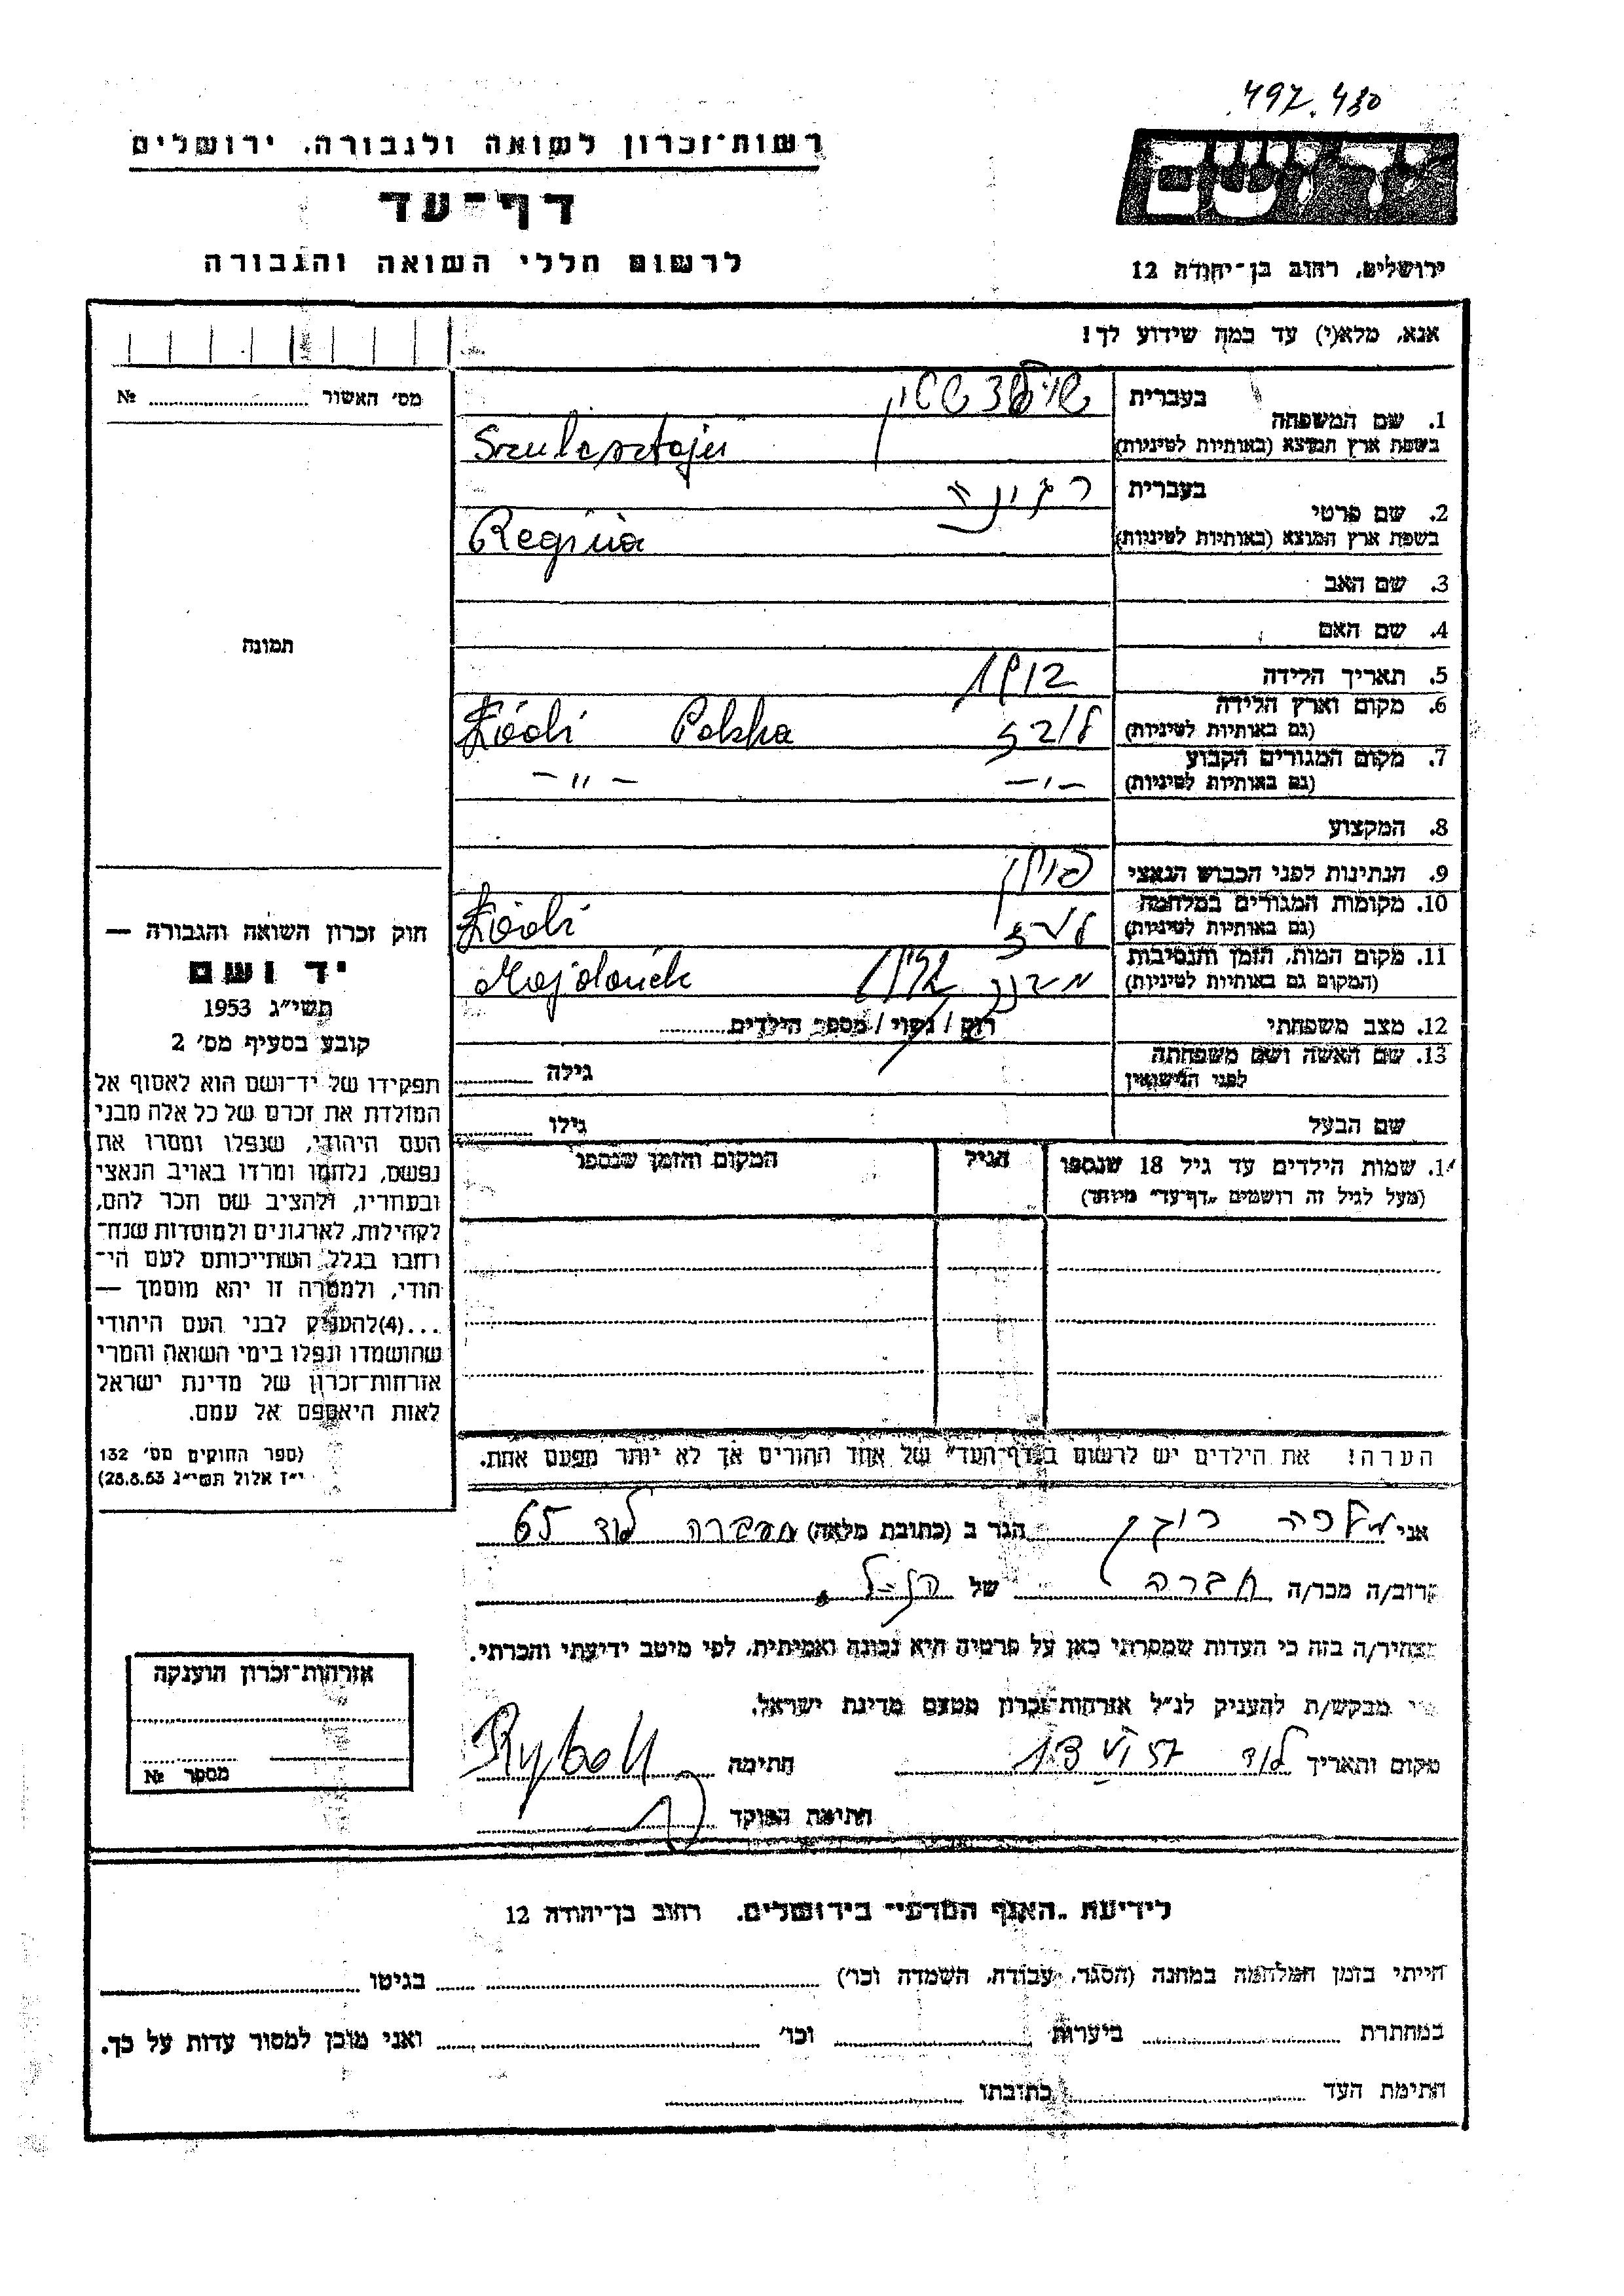 497.480
רשות־זכרון לשואה ולגבורה, ירושלים
דף־עד
לרשום חללי השואה והגבורה
יד ושם
ירושלים, רחוב בן־יהודה 12
אנא, מלא(י) עד כמה שידוע לך!
מס' האשור № 
1. שם המשפחה
בעברית
בשפת ארץ המוצא (באותיות לטיניות)
Szulcsztajn
2. שם פרטי
בעברית רגינה
בשפת ארץ המוצא (באותיות לטיניות) Regina
3. שם האב
4. שם האם
5. תאריך הלידה 1912
6. מקום וארץ הלידה
(גם באותיות לטיניות) לודז Łódź Polska
7. מקום המגורים הקבוע
(גם באותיות לטיניות) -"- -"-
8. המקצוע
9. הנתינות לפני הכבוש הנאצי פולין
10. מקומות המגורים במלחמה
(גם באותיות לטיניות) לודז Łódź
11. מקום המות, הזמן והנסיבות
(המקום גם באותיות לטיניות) Majdanek
12. מצב משפחתי רווק / נשוי / מספר הילדים
13. שם האשה ושם משפחתה
לפני הנישואין גילה
שם הבעל גילו
14. שמות הילדים עד גיל 18 שנספו הגיל המקום והזמן שנספו
(מעל לגיל זה רושמים "דף־עד" מיוחד)
הערה! את הילדים יש לרשום ב"דף־העד" של אחד ההורים אך לא יותר מפעם אחת.
תמונה
חוק זכרון השואה והגבורה —
יד ושם
תשי"ג 1953
קובע בסעיף מס' 2
תפקידו של יד־ושם הוא לאסוף אל
המולדת את זכרם של כל אלה מבני
העם היהודי, שנפלו ומסרו את
נפשם, נלחמו ומרדו באויב הנאצי
ובעוזריו, ולהציב שם וזכר להם,
לקהילות, לארגונים ולמוסדות שנח־
רבו בגלל השתייכותם לעם הי־
הודי, ולמטרה זו יהא מוסמך —
...(4)להעניק לבני העם היהודי
שהושמדו ונפלו בימי השואה והמרי
אזרחות־זכרון של מדינת ישראל
לאות היאספם אל עמם.
(ספר החוקים מס' 132
י"ז אלול תשי"ג 28.8.53)
אני מלכה הגר ב (כתובת מלאה) לוד 65
קרוב/ה מכר/ה חברה של הנ"ל
מצהיר/ה בזה כי העדות שמסרתי כאן על פרטיה היא נכונה ואמיתית, לפי מיטב ידיעתי והכרתי.
אני מבקש/ת להעניק לנ"ל אזרחות־זכרון מטעם מדינת ישראל.
מקום ותאריך לוד 13 VI 57 חתימה
חתימת הפוקד
אזרחות־זכרון הוענקה
מספר №
לידיעת "האגף המדעי" בירושלים, רחוב בן־יהודה 12
הייתי בזמן המלחמה במחנה (הסגר, עבודה, השמדה וכו') בגיטו
במחתרת ביערות וכו' ואני מוכן למסור עדות על כך.
חתימת העד כתובתו